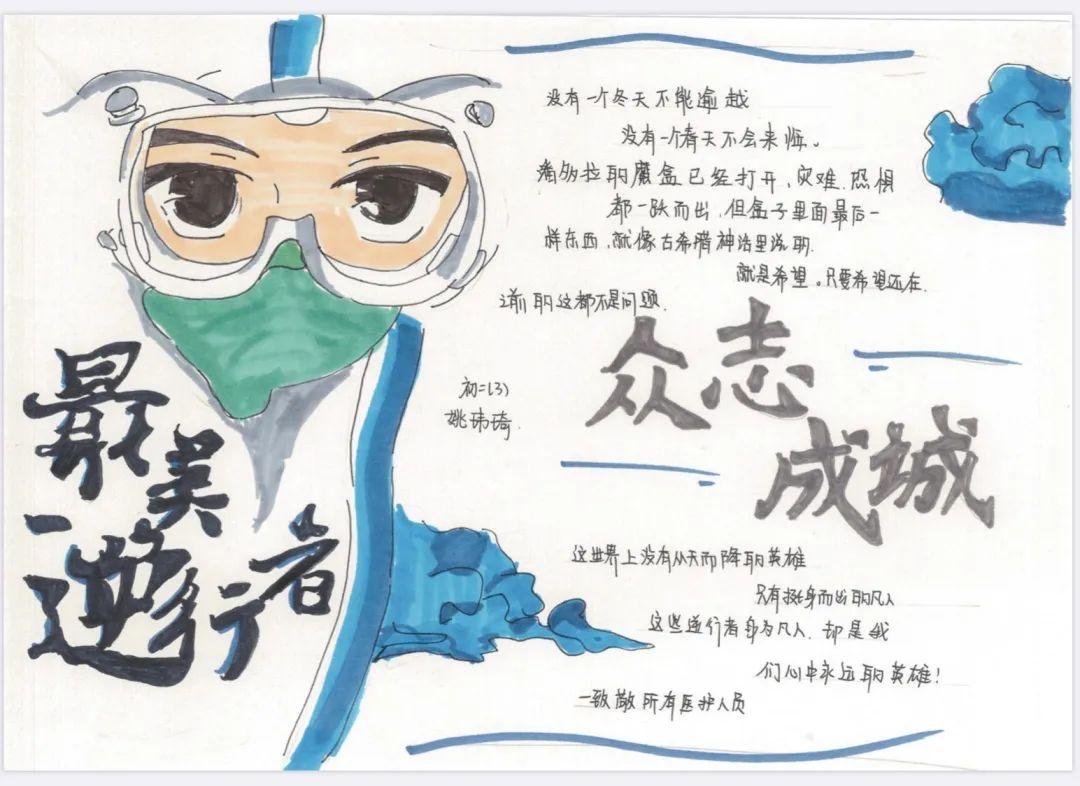 没有一个冬天不能逾越
没有一个春天不会来临。
潘多拉的魔盒已经打开、灾难、恐惧
都一跃而出，但盒子里面最后一
样东西、就像古希腊神话里说的.
就是希望。只要希望还在.
的这都不是问题.
众志
成城
初二(3)
姚玮琦.
最美
逆行者
这世界上没有从天而降的英雄
只有挺身而出的凡人
这些逆行者身为凡人.却是我
们心中永远的英雄!
一致敬所有医护人员